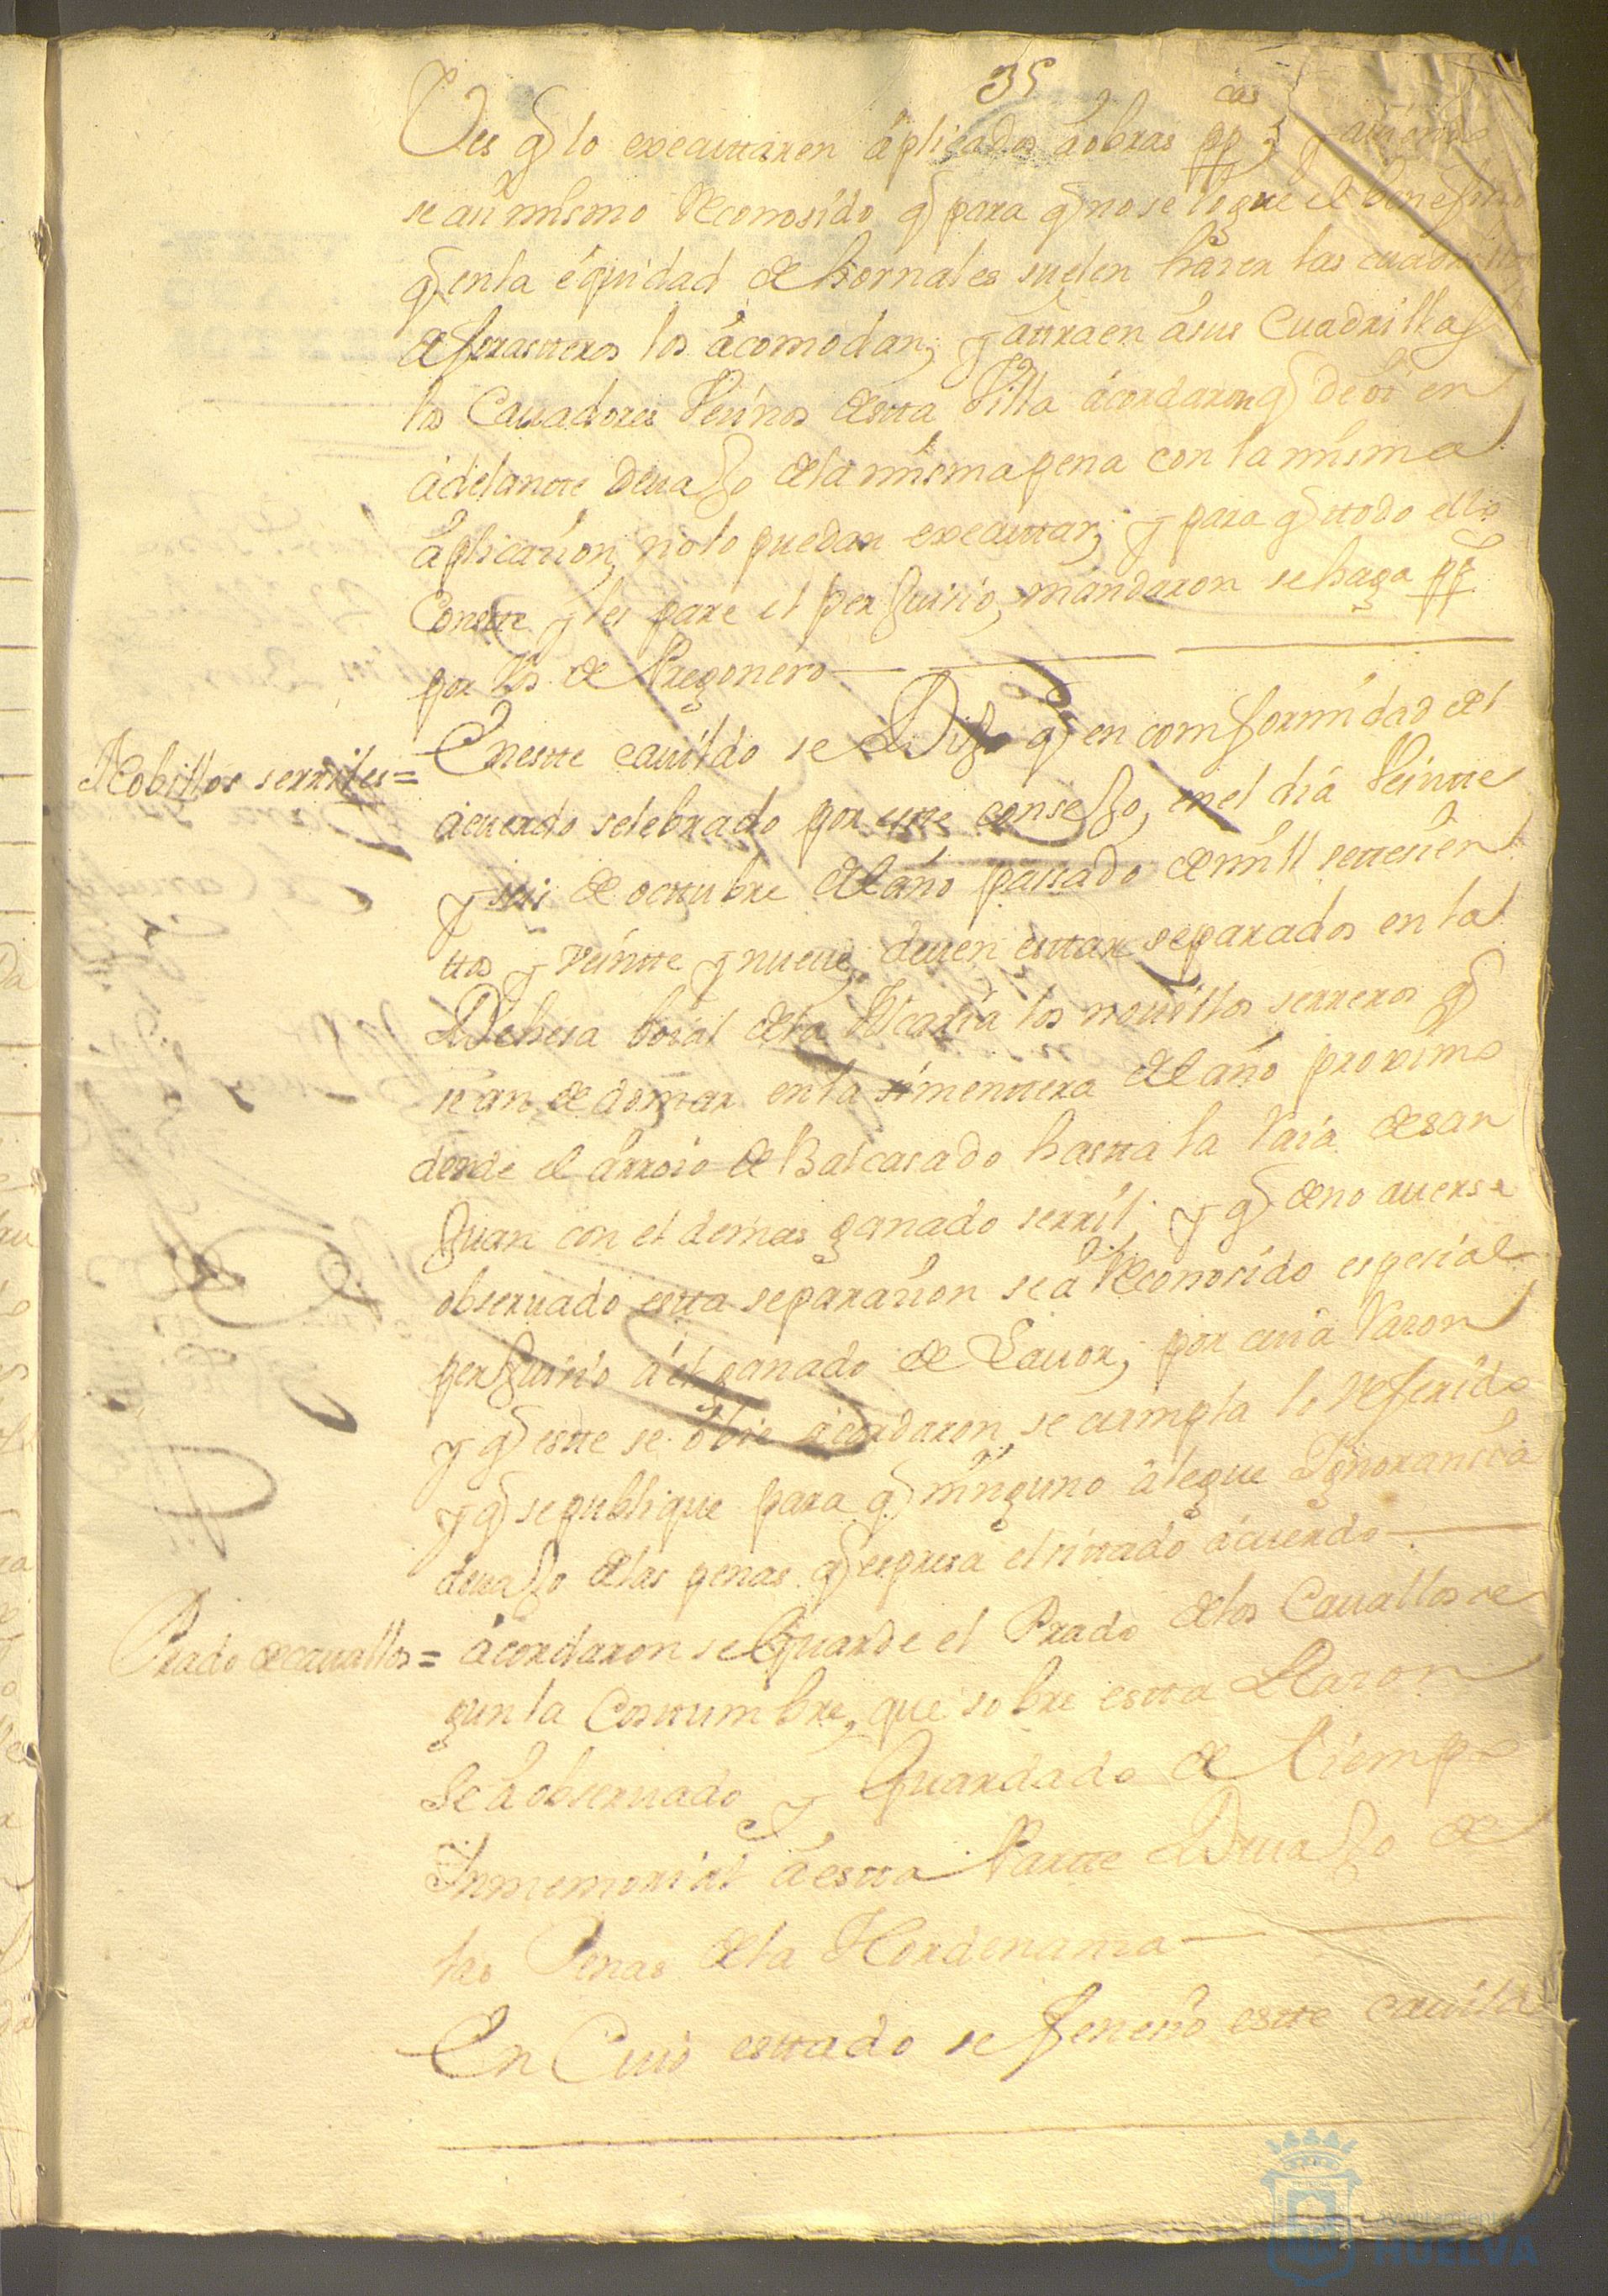 35
Ves q̃ lo executtaren áplicados áobras pp cas y auiendo
se asi mismo Reconosido q̃ para q̃ no se logre el benefisio
q̃ en la équidad de hornales suelen haser las cuadrillas
de forastteros los ácomodan, y attraen ásus Cuadrillas
los Cauadores Vesinos destta Villa ácordaron q̃ de oi en
ádelantte devajo dela misma pena con la misma
áplicasion no lo puedan executtar; y para q̃ ttodo ello
Constte y les pare el perjuisio, mandaron se haga pp
por Vos de Pregonero
Nobillos serriles =
En estte cauildo se Dijo q̃ en comformidad del
ácuerdo selebrado por estte consejo, en el dia Veintte
y seis de octtubre del año passado de mill settesien
ttos y veintte y nueue, deuen esttar separados en la
Dehesa boial dela Alcaria los nouillos serreros q̃
se an de domar en la simenttera del año proximo
desde el árroio de Balcasado hastta la Vaia de san
Juan con el demas ganado serril; y q̃ de no auerse
obseruado estta separasion se á Reconosido espesial
perjuisio á el ganado de Lauor, por cuia Razon
y q̃ estte se óbie ácordaron se cumpla lo Referido
y q̃ se publique para q̃ ninguno álegue Ygnorancia
devajo delas penas q̃ espresa el sittado ácuerdo
Prado de cauallos =
ácordaron se Guarde el Prado delos Cauallos se
gun la Costtumbre, que sobre estta Razon
Se á obseruado y Guardado de tiempo
Inmemorial á estta Partte Devajo de
las Penas dela Hordenanza
En Cuio esttado se fenesio estte cauildo
Ayuntamiento
HUELVA